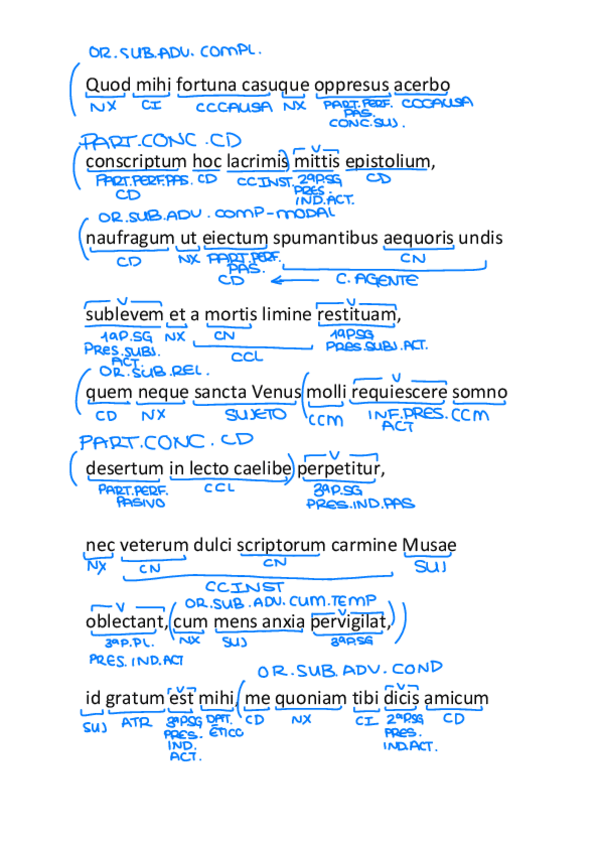 OR.SUB.ADV. COMPL.
Quod mihi fortuna casuque oppresus acerbo
NX CI CCCAUSA NX PART.PERF. CCCAUSA
PAS.
CONC.SUJ.
PART.CONC.CD
conscriptum hoc lacrimis mittis epistolium,
V
PART.PERF.PAS. CD CCINST. 2ªP.SG CD
CD PRES.
IND.ACT.
OR.SUB.ADV. COMP-MODAL
naufragum ut eiectum spumantibus aequoris undis
CD NX PART.PERF. CN
PAS.
CD ← C. AGENTE
V V
sublevem et a mortis limine restituam,
1ªP.SG NX CN 1ªP.SG
PRES.SUBJ. CCL PRES.SUBJ.ACT.
ACT.
OR.SUB.REL.
V
quem neque sancta Venus molli requiescere somno
CD NX SUJETO CCM INF.PRES. CCM
ACT
PART.CONC.CD
V
desertum in lecto caelibe) perpetitur,
PART.PERF. CCL 3ªP.SG
PASIVO PRES.IND.PAS
nec veterum dulci scriptorum carmine Musae
NX CN CN SUJ
CCINST
V OR.SUB.ADV.CUM.TEMP V
oblectant, (cum mens anxia pervigilat,)
3ªP.PL. NX SUJ 3ªP.SG
PRES.IND.ACT
OR.SUB.ADV.COND
V V
id gratum est mihi, (me quoniam tibi dicis amicum
SUJ ATR 3ªP.SG DAT. CD NX CI 2ªP.SG CD
PRES. ÉTICO PRES.
IND. IND.ACT.
ACT.